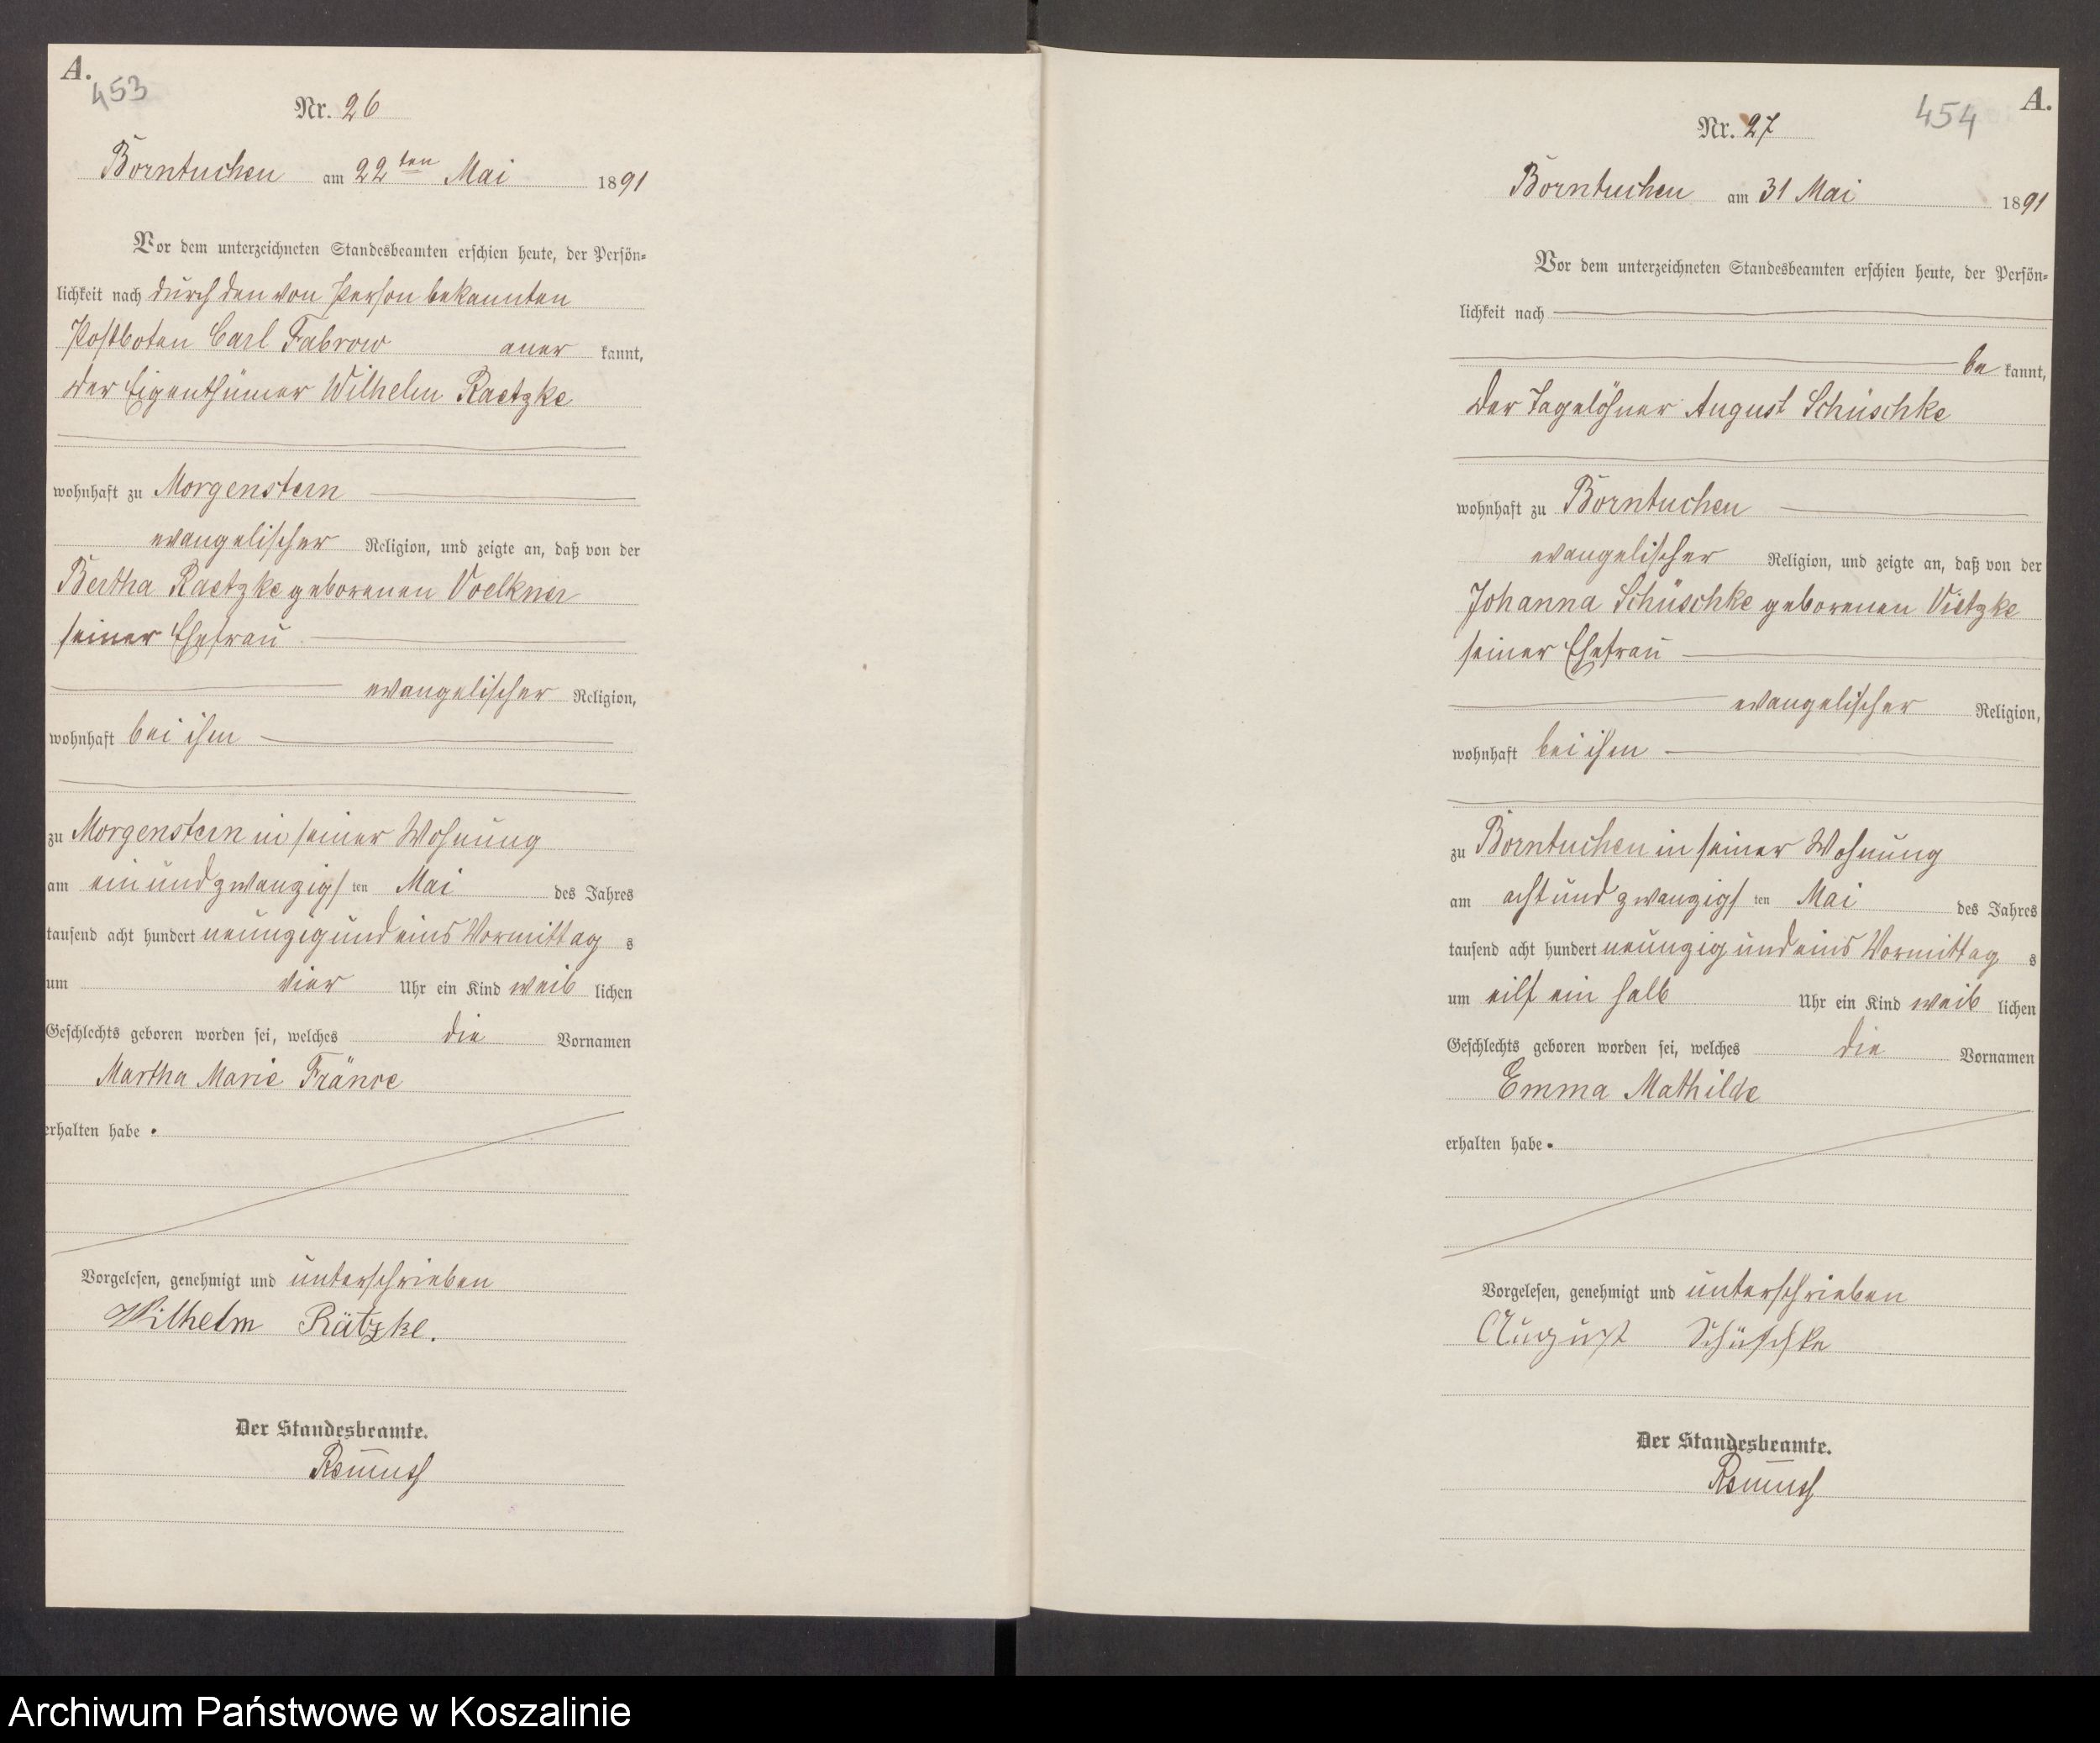 A.
453
Nr. 26
Borntuchen am 22ten Mai 1891
Vor dem unterzeichneten Standesbeamten erschien heute, der Persön-
lichkeit nach durch den von Person bekannten
Postboten Carl Fabrow aner kannt,
der Eigenthümer Wilhelm Raetzke
wohnhaft zu Morgenstern
evangelischer Religion, und zeigte an, daß von der
Bertha Raetzke geborenen Voelkner
seiner Ehefrau
evangelischer Religion,
wohnhaft bei ihm
zu Morgenstern in seiner Wohnung
am ein und zwanzigs ten Mai des Jahres
tausend acht hundert neunzig und eins Vormittag s
um vier Uhr ein Kind weib lichen
Geschlechts geboren worden sei, welches die Vornamen
Martha Marie
erhalten habe.
Vorgelesen, genehmigt und unterschrieben
Wilhelm Rätzke.
Der Standesbeamte.
A.
454
Nr. 27
Borntuchen am 31 Mai 1891
Vor dem unterzeichneten Standesbeamten erschien heute, der Persön-
lichkeit nach
be kannt,
der Tagelöhner August Schüschke
wohnhaft zu Borntuchen
evangelischer Religion, und zeigte an, daß von der
Johanna Schüschke geborenen Vietzke
seiner Ehefrau
evangelischer Religion,
wohnhaft bei ihm
zu Borntuchen in seiner Wohnung
am acht und zwanzigs ten Mai des Jahres
tausend acht hundert neunzig und eins Vormittag s
um eilf ein halb Uhr ein Kind weib lichen
Geschlechts geboren worden sei, welches die Vornamen
Emma Mathilde
erhalten habe.
Vorgelesen, genehmigt und unterschrieben
August Schüschke
Der Standesbeamte.
Archiwum Państwowe w Koszalinie